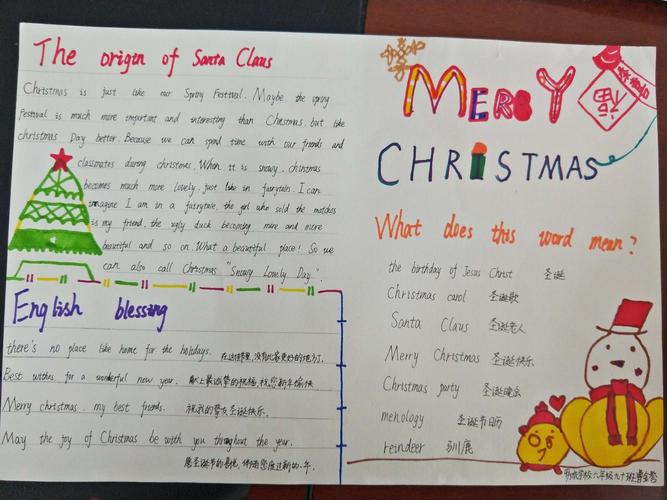 The origin of Santa Claus
Christmas is just like our Spring Festival. Maybe the spring
Festival is much more important and interesting than Christmas. but like
christmas Day better. Because we can spend time with our friends and
classmates during christmas. When it is snowy, chistmas
becomes much more lovely. just like in fairyteln. I can
imagine I am in a fairytale, the girl who sold the matches
is my friend, the ugly duck becoming more and more
beautiful and so on. What a beautiful place! So we
can also call Christmas "Snowy Lovely Day".
English blessing
there's no place like home for the holidays. 在这世界里，没有比家更好的地方了。
Best wishes for a wonderful new year. 献上最诚挚的祝福，祝您新年愉快
Merry christmas. my best friends. 祝我的挚友圣诞快乐。
May the joy of Christmas be with you throughout the year.
愿圣诞节的喜悦，伴随您度过新的一年。
MERRY
福
CHRISTMAS
What does this word mean?
the birthday of Jesus Christ 圣诞
Christmas carol 圣诞歌
Santa Claus 圣诞老人
Merry Christmas 圣诞快乐
Christmas party 圣诞晚会
menology 圣诞节日历
reindeer 驯鹿
学校六年级九十班